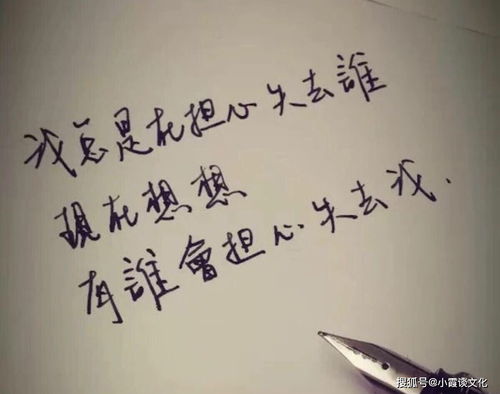 我总是在担心失去誰
現在想想
有誰會担心失去我.
搜狐号@小霞谈文化